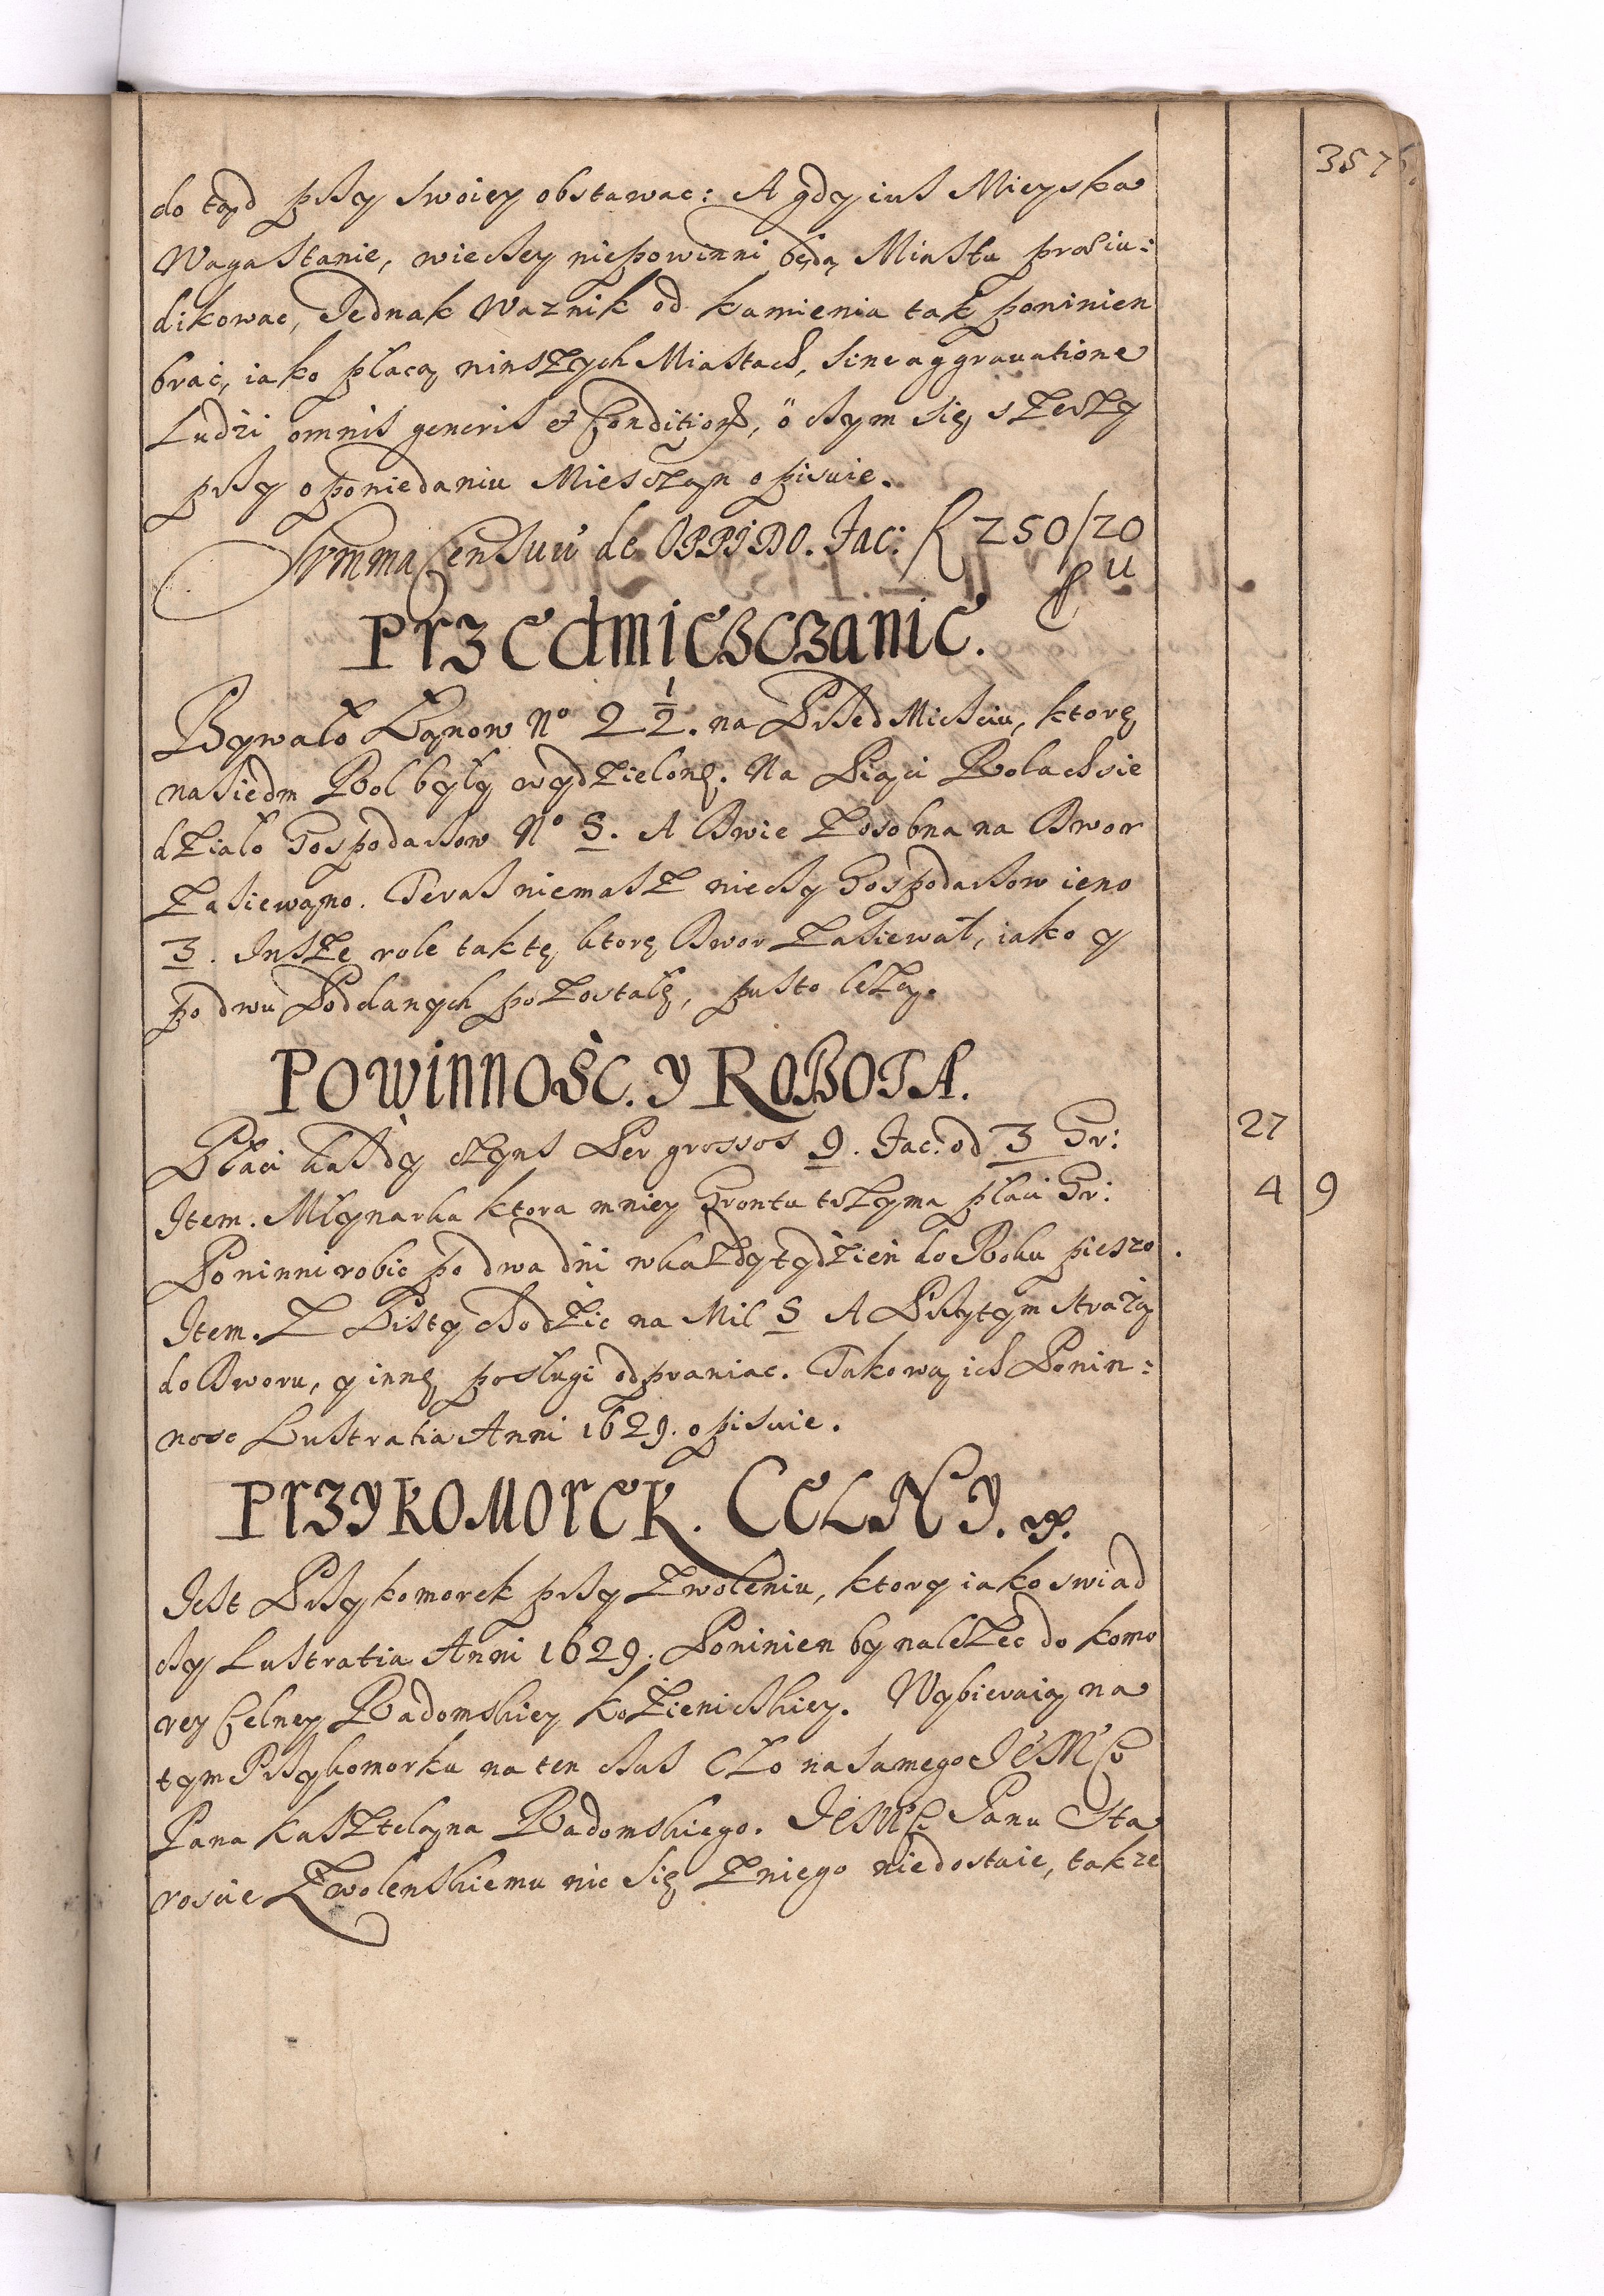 357
do tąd przy swoiey obstawac: A gdy ius Mieyska
Waga stanie, wiecsey niepowinni będą Miastu praeiu:
dikowac, Jednak Waznik od kamienia tak powinien
brać, iako płacą winszych Miastach, sine aggrauatione
Ludzi omnis generis et Conditionis, o czym się szerzy
przy opowiedaniu Miesczan opisuie.
Summa Censuu de OPPIDO. Fac: fl 250/20
Przedmiesczanie.
Bywało Łanow No 2 1/2. na Przedmiesciu, ktorę
nasiedm Rol były wydzielonę. Na Piąci Rolach sie
działo Gospodarzow No 5. A Dwie zosobna na Dwor
zasiewano. Teras niemasz wiecsy Gospodarzow ieno
3. Insze role taktę ktorę Dwor zasiewał, iako y
po dwu Poddanych pozostałę, pusto lezą.
POWINNOSC. Y ROBOTA.
Płaci kazdy czyns Per grossos 9. Fac: od 3 Gr: 27
Item. Młynarka ktora mniey Gruntu trzyma płaci Gr: 4 9
Powinni robic po dwa dni wkazdy tydzień do Roku pieszo.
Item. Z Listy chodzic na Mil 5 A Przytym strażą
do Dworu, y innę posługi odprawiac. Takową ich Powin:
nosc Lustratia Anni 1629. opisuie.
PRZYKOMOREK. CELNY.
Jest Przykomorek przy Zwoleniu, ktory iako swiad
czy Lustratia Anni 1629. Powinien by nalezec do komo
rey Celney Radomskiey Kozienickiey. Wybieraią na
tym Przykomorku na ten czas Cło na samego JeMCi
Pana Kasztelana Radomskiego. JeMCi Panu Sta
roscie Zwolenskiemu nic się z niego niedostaie, takze